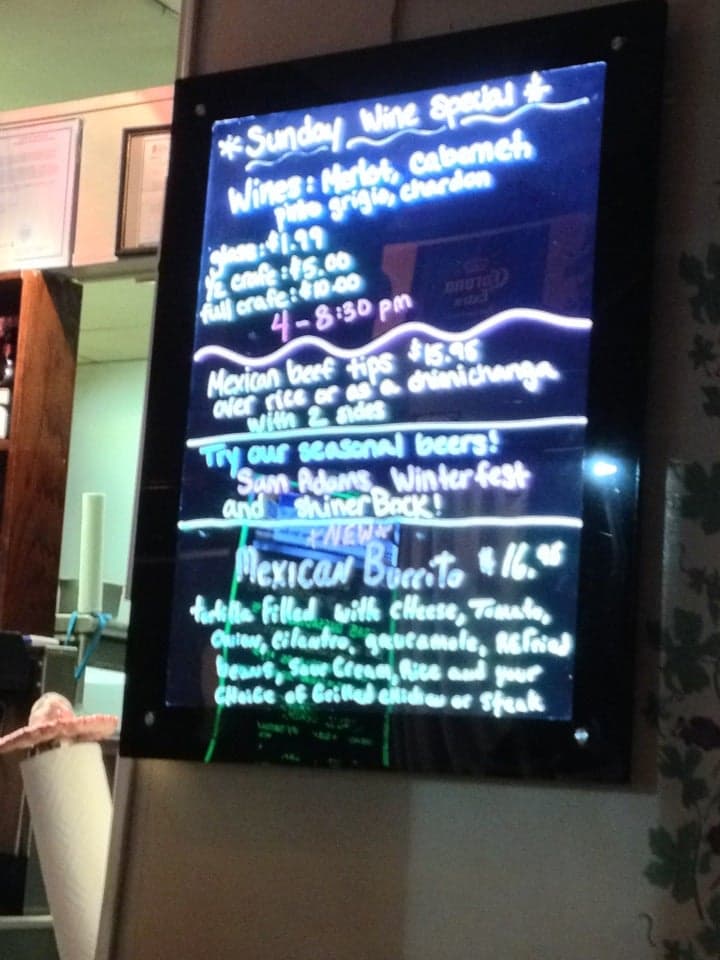 * Sunday Wine Special *
Wines: Merlot, cabernet
pinto grigio, chardon
glass: $1.99
1/2 crafe: $5.00
full crafe: $10.00
4 - 8:30 pm
Mexican beef tips $15.95
over rice or as a chimichanga
with 2 sides
Try our seasonal beers!
Sam Adams Winterfest
and Shiner Bock!
*NEW*
Mexican Burrito $16.95
tortilla filled with cheese, Tomato,
Onion, Cilantro, guacamole, Refried
beans, Sour Cream, Rice and your
choice of Grilled chicken or steak
Corona
Extra